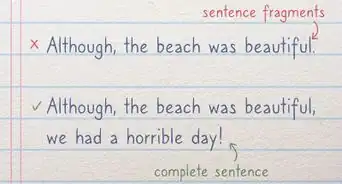 sentence fragments
x Although, the beach was beautiful.
✓ Although, the beach was beautiful,
we had a horrible day!
complete sentence